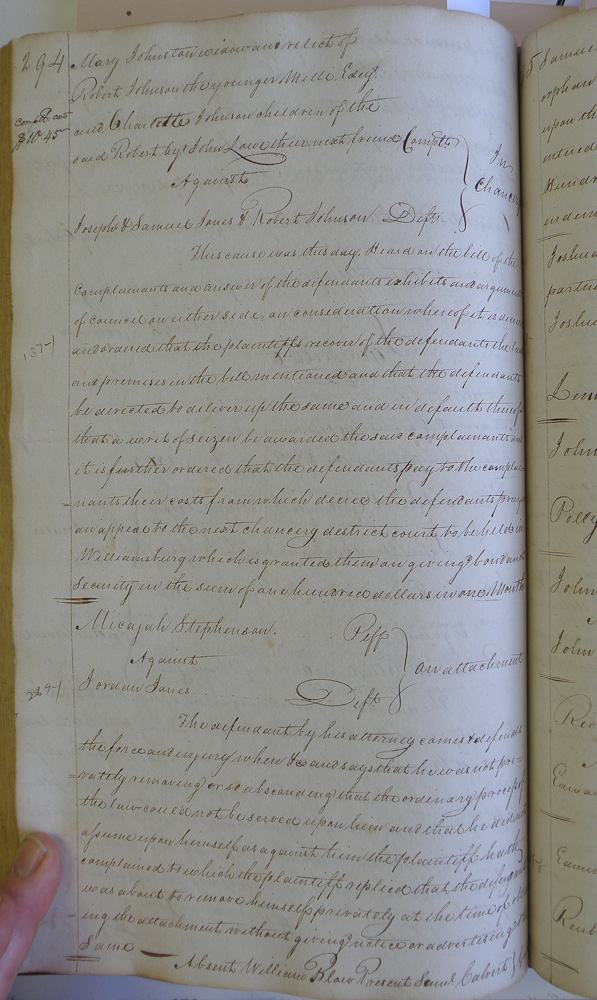 294
Mary Johnston widow and relict of
Robert Johnson the younger Mille, Edey
and Charlotte Johnson children of the
said Robert by John Lawe their next friend Complts
Compt. cost
$10.45
Against
In
Chancery
Joseph & Samuel Jones & Robert Johnson Defts
This cause was this day, Heard on the bill of the
Complainants and answer of the defendants exhibits and argument
of Council on either side, on consideration whereof it is decreed
and ordered that the plaintiffs recover of the defendants the
137
and premises in the bill mentioned and that the defendants
be directed to deliver up the same and in default thereof
that a writ of seizen be awarded the said complainants and
it is further ordered that the defendants pay to the complai-
-nants their costs from which decree the defendants prays
an appeal to the next chancery destrict court to be held in
Williamsburg which is granted them on giving bond and
security in the sum of one hundred dollars in one Month
Micajah Stephenson. Plff
Against
an attachment
Jordan Jones Deft
The defendant by his attorney comes & defends
the force and injury when &c and says that he was not pri-
-vately removing or so absconding that the ordenary process of
the law could not be served upon him and that he did not
assume upon himself as against him the plaintiff hath
complained to which the plaintiff replied that the defendant
was about to remove himself privately at the time of
-ing the attachment without giving notice or advertising the
Same
Absent William Blow Present Saml Calvert
5 Samuel
orphan
upon th
Hundr
Joshua
partne
Joshu
John
Polly
John
John
Reub